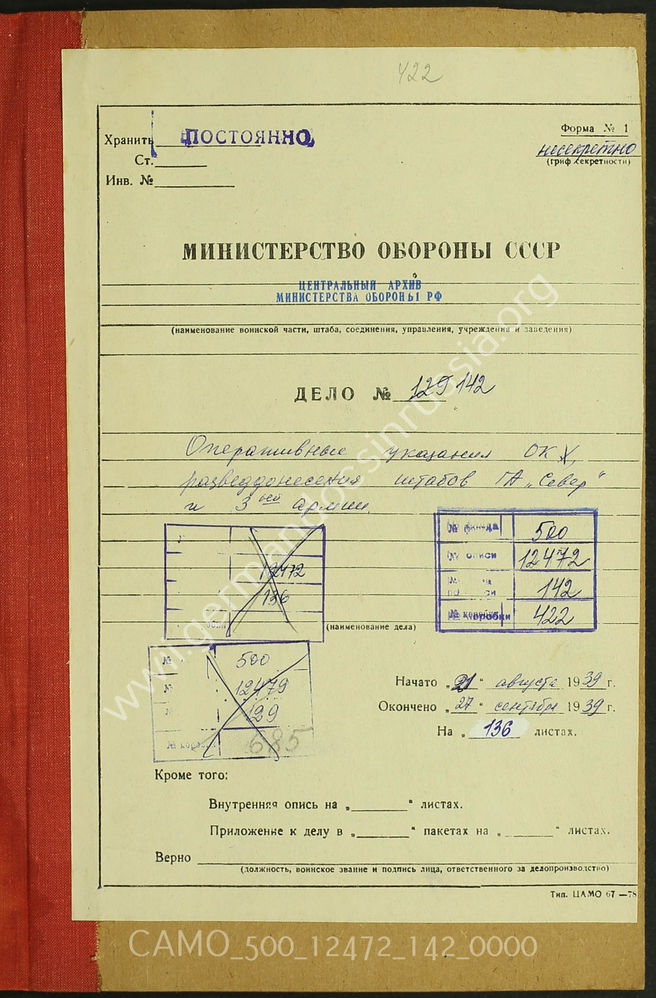 422
Форма № 1
Хранить ПОСТОЯННО
несекретно
(гриф секретности)
Ст.
Инв. №
МИНИСТЕРСТВО ОБОРОНЫ СССР
ЦЕНТРАЛЬНЫЙ АРХИВ
МИНИСТЕРСТВА ОБОРОНЫ РФ
(наименование воинской части, штаба, соединения, управления, учреждения и заведения)
ДЕЛО № 129 142
Оперативные указания ОКХ,
разведдонесения штабов ГА „Север"
и 3ей армии.
№ фонда 500
№ описи 12472
142
№ коробки 422
12472
136
(наименование дела)
№ 500
№ 12479
№ 129
685
Начато „21" августа 1939 г.
Окончено „27" сентября 1939 г.
На „ 136 листах.
Кроме того:
Внутренняя опись на „ " листах.
Приложение к делу в „ " пакетах на „ " листах.
Верно
(должность, воинское звание и подпись лица, ответственного за делопроизводство)
Тип. ЦАМО 67—78
www.germandocsinrussia.org
CAMO_500_12472_142_0000